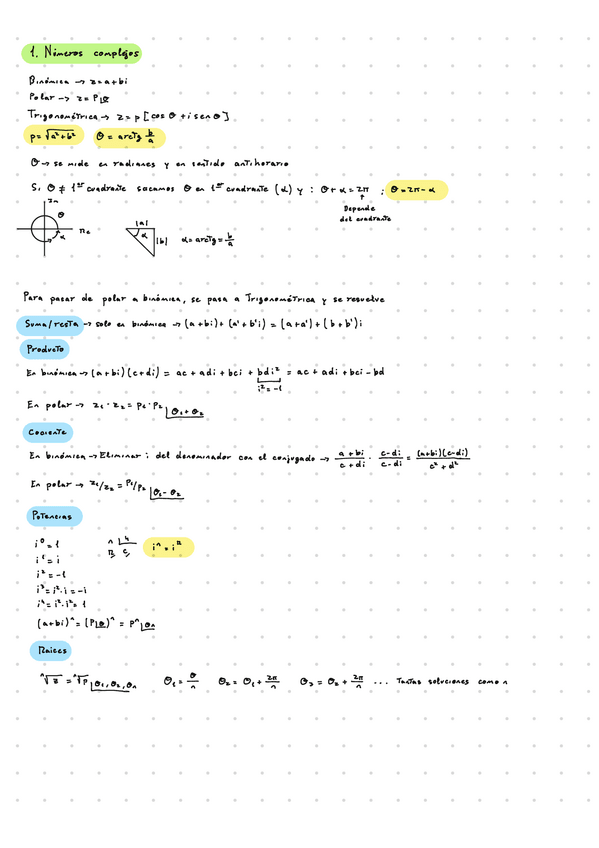 1. Números complejos
Binómica → z=a+bi
Polar → z= P|θ
Trigonométrica → z=p[cos θ +i sen θ]
p=√a²+b² θ = arctg b/a
θ → se mide en radianes y en sentido antihorario
Si θ ≠ 1er cuadrante sacamos θ en 1er cuadrante (α) y : θ+α=2π ; θ=2π-α
↑
Depende
del cuadrante
Im
θ
Re
α
|a|
α
|b|
α=arctg=b/a
Para pasar de polar a binómica, se pasa a Trigonométrica y se resuelve
Suma/resta → solo en binómica → (a+bi)+(a'+b'i) = (a+a')+(b+b')i
Producto
En binómica → (a+bi)(c+di) = ac+adi+bci+bdi² = ac+adi+bci-bd
i²=-1
En polar → z₁·z₂=p₁·p₂|θ₁+θ₂
Cociente
En binómica → Eliminar i del denominador con el conjugado → a+bi/c+di · c-di/c-di = (a+bi)(c-di)/c²+d²
En polar → z₁/z₂=p₁/p₂|θ₁-θ₂
Potencias
i⁰=1
n |4
R C
iⁿ=iᴿ
i¹=i
i²=-1
i³=i²·i=-i
i⁴=i²·i²=1
(a+bi)ⁿ=(p|θ)ⁿ=pⁿ|θn
Raices
ⁿ√z=ⁿ√p|θ₁,θ₂,θn θ₁=θ/n θ₂=θ₁+2π/n θ₃=θ₂+2π/n ... Tantas soluciones como n